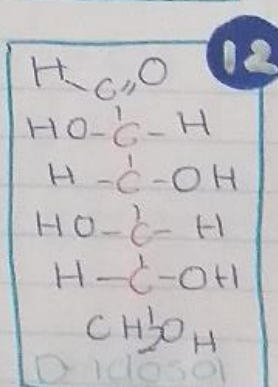 12
H C=O
HO-C-H
H-C-OH
HO-C-H
H-C-OH
CH2OH
D-idosa